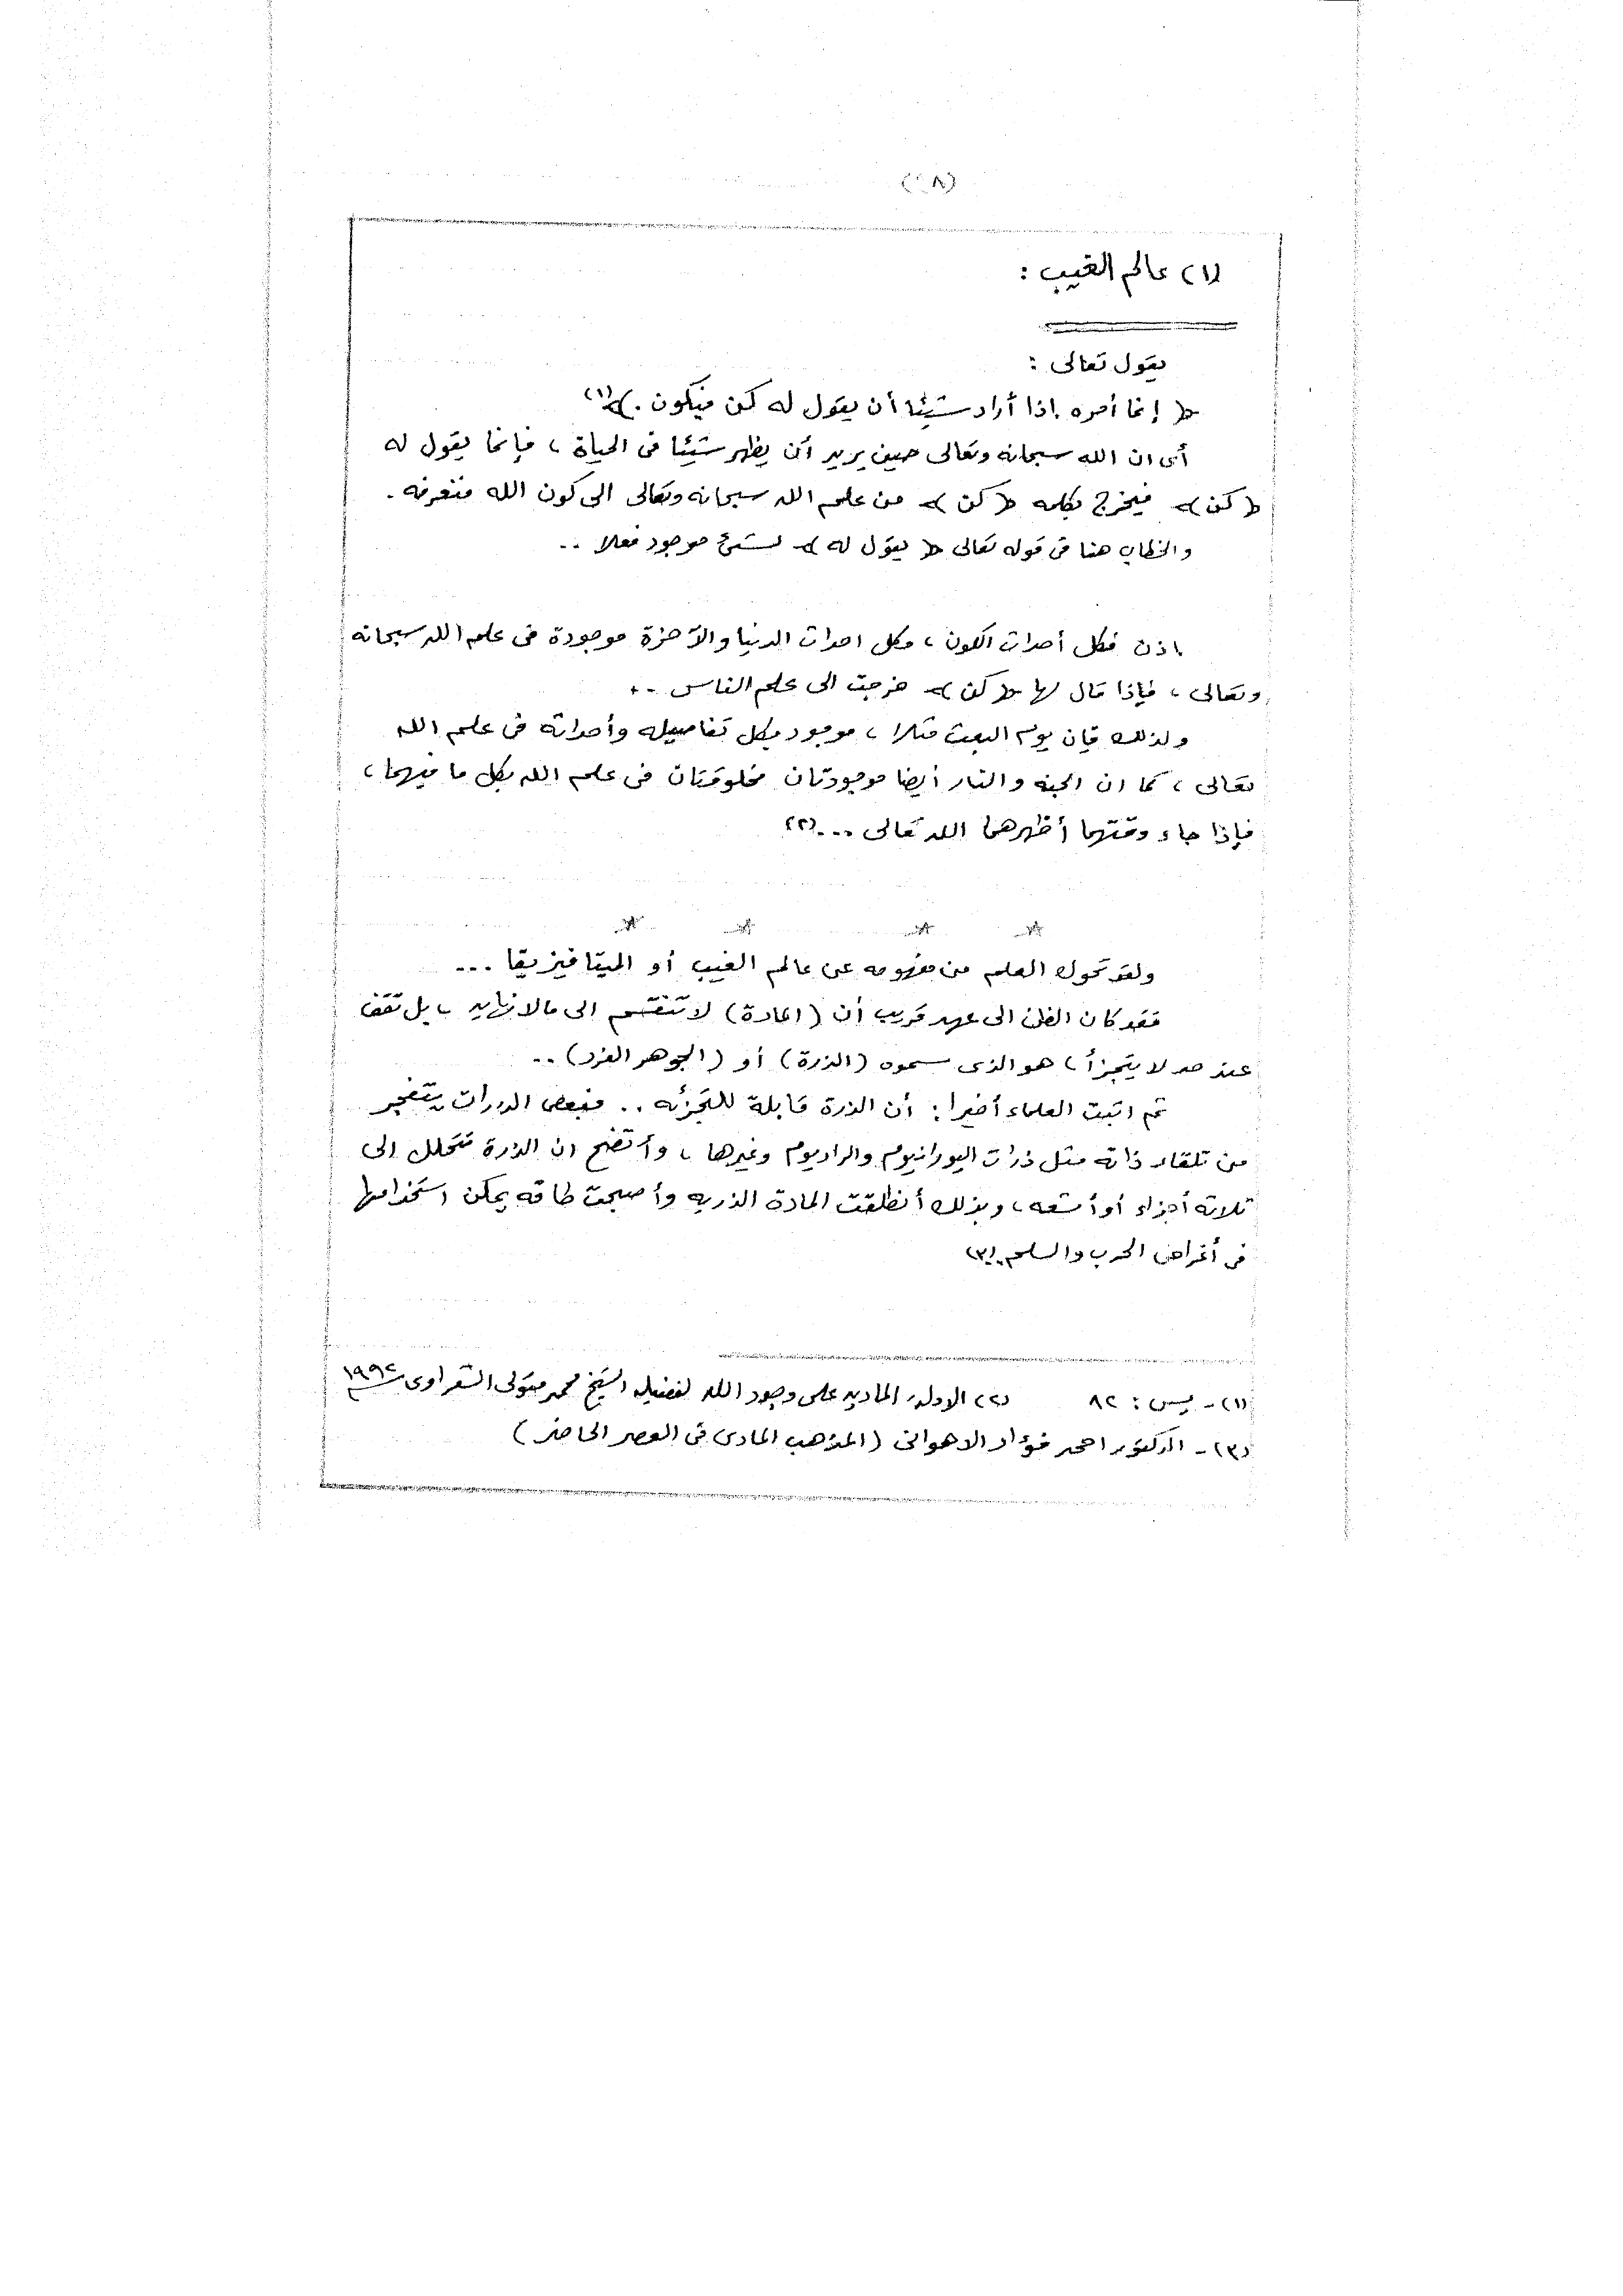 (١) عالم الغيب :
يقول تعالى :
﴿ إنما أمره إذا أراد شيئا أن يقول له كن فيكون . ﴾ (١)
أى ان الله سبحانه وتعالى حين يريد أن يظهر شيئا فى الحياة ، فإنما يقول له
﴿ كن ﴾ فيخرج بكلمه ﴿ كن ﴾ من علم الله سبحانه وتعالى الى كون الله فنعرفه .
والخطاب هنا فى قوله تعالى ﴿ يقول له ﴾ لشىء موجود فعلا ..
إذن فكل أحداث الكون ، وكل احداث الدنيا والآخرة موجودة فى علم الله سبحانه
وتعالى ، فإذا قال لها ﴿ كن ﴾ خرجت الى علم الناس ..
ولذلك فإن يوم البعث مثلا ، موجود بكل تفاصيله وأحداثه فى علم الله
تعالى ، كما ان الجنه والنار أيضا موجودتان مخلوقتان فى علم الله بكل ما فيهما ،
فإذا جاء وقتهما أظهرهما الله تعالى ... (٢)
ولقد تحول العلم من مفهومه عن عالم الغيب أو الميتافيزيقا ...
فقد كان الظن الى عهد قريب أن (المادة) لا تنقسم الى مالانهايه ، بل تقف
عند حد لا يتجزأ ، هو الذى سموه (الذرة) أو (الجوهر الفرد) ..
ثم اثبت العلماء أخيرا : أن الذرة قابلة للتجزئه .. فبعض الذرات يتفجر
من تلقاء ذاته مثل ذرات اليورانيوم والراديوم وغيرها ، وأتضح ان الذرة تتحلل إلى
ثلاثه أجزاء أو أشعه ، وبذلك أنطلقت المادة الذريه وأصبحت طاقه يمكن استخدامها
فى أغراض الحرب والسلم .. (٣)
(١) - يس : ٨٢ (٢) الادلة الماديه على وجود الله لفضيله الشيخ محمد متولى الشعراوى ١٩٩٢
(٣) - الدكتور احمد فؤاد الاهوانى (المذهب المادى فى العصر الحاضر)